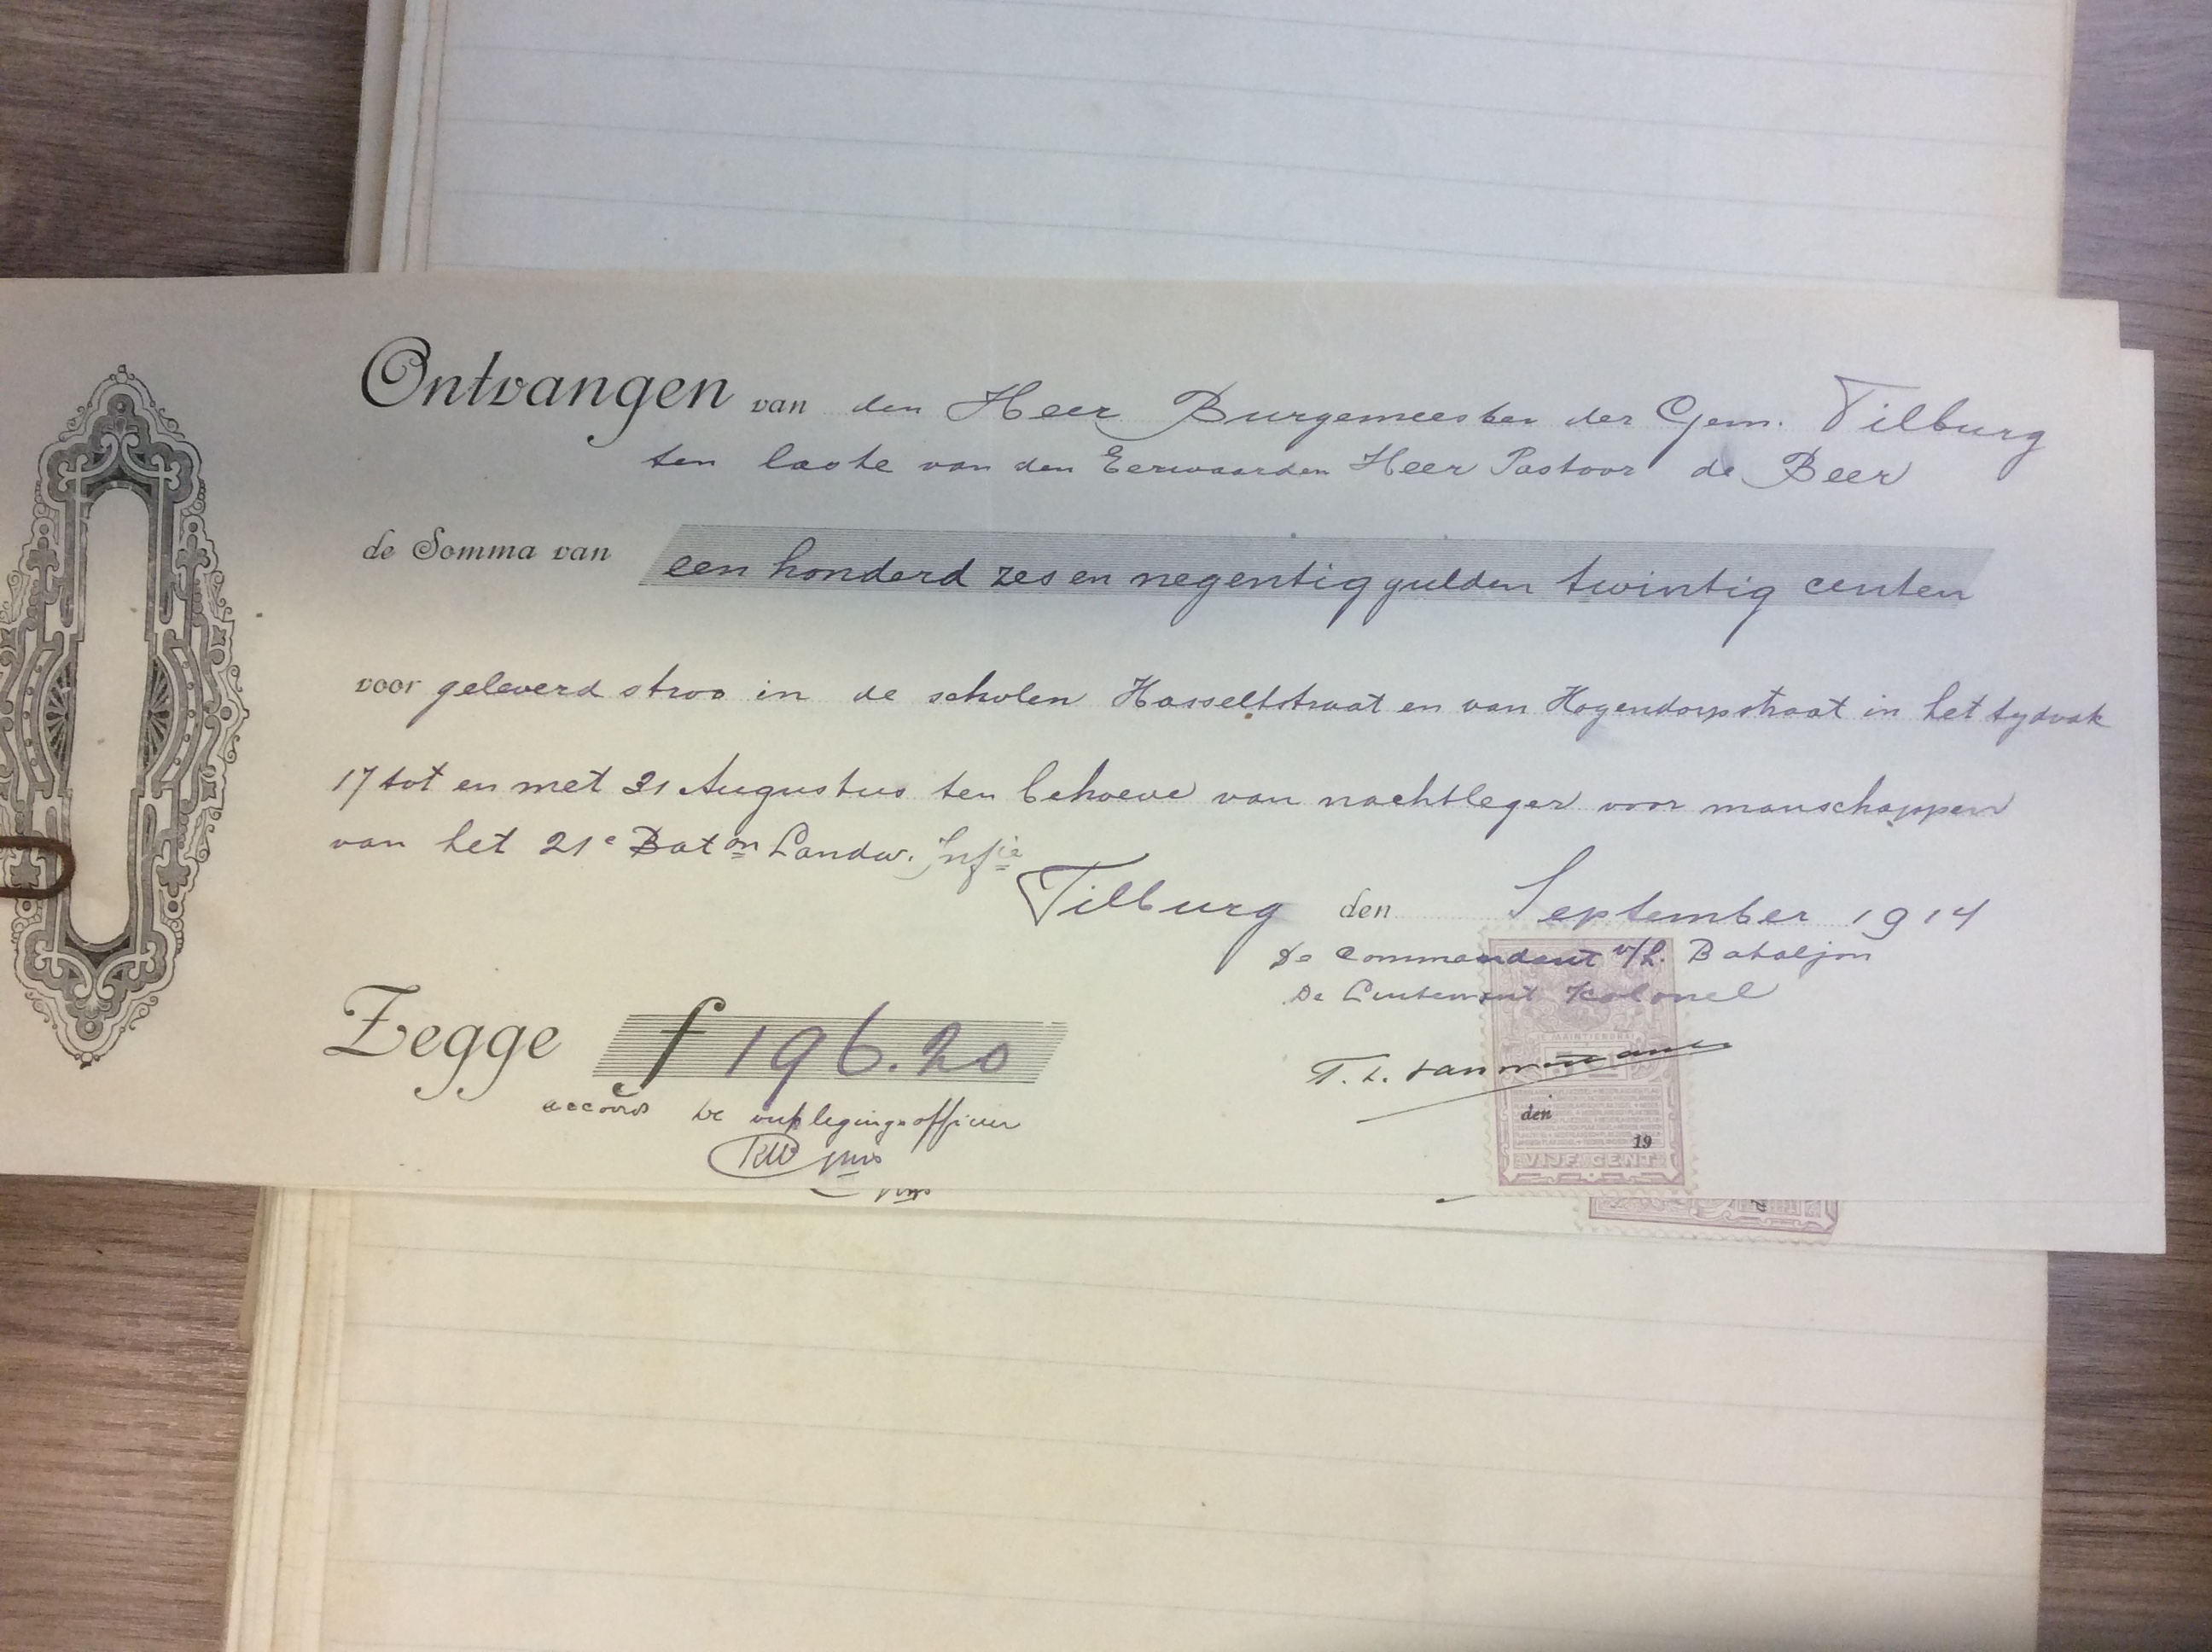 Ontvangen van den Heer Burgemeester der Gem. Tilburg
ten laste van den Eerwaarden Heer Pastoor de Beer
de Somma van een honderd zes en negentig gulden twintig centen
voor geleverd stroo in de scholen Hasseltstraat en van Hogendorpstraat in het tydvak
17 tot en met 31 Augustus ten behoeve van nachtleger voor manschappen
van het 21e Baton Landw. Infie
Tilburg den September 1914
De Commandant v/h. Bataljon
De Luitenant Kolonel
Zegge f 196.20
accoord De verplegingsofficier
den
19
VIJF CENT